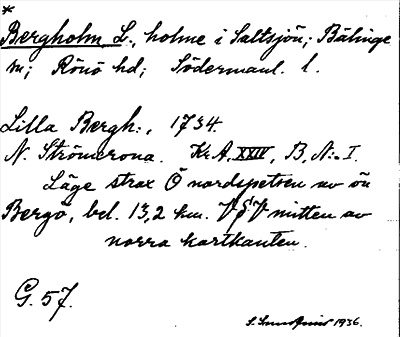 *
Bergholm, L., holme i Saltsjön; Bälinge
sn; Rönö hd; Södermanl. l.
Lilla Bergh:, 1734.
N. Strömcrona. Kr A, XXIV, B, N:o I.
Läge strax Ö nordspetsen av ön
Bergö, bel. 13,2 km. V g V mitten av
norra kartkanten.
G. 57.
1936.